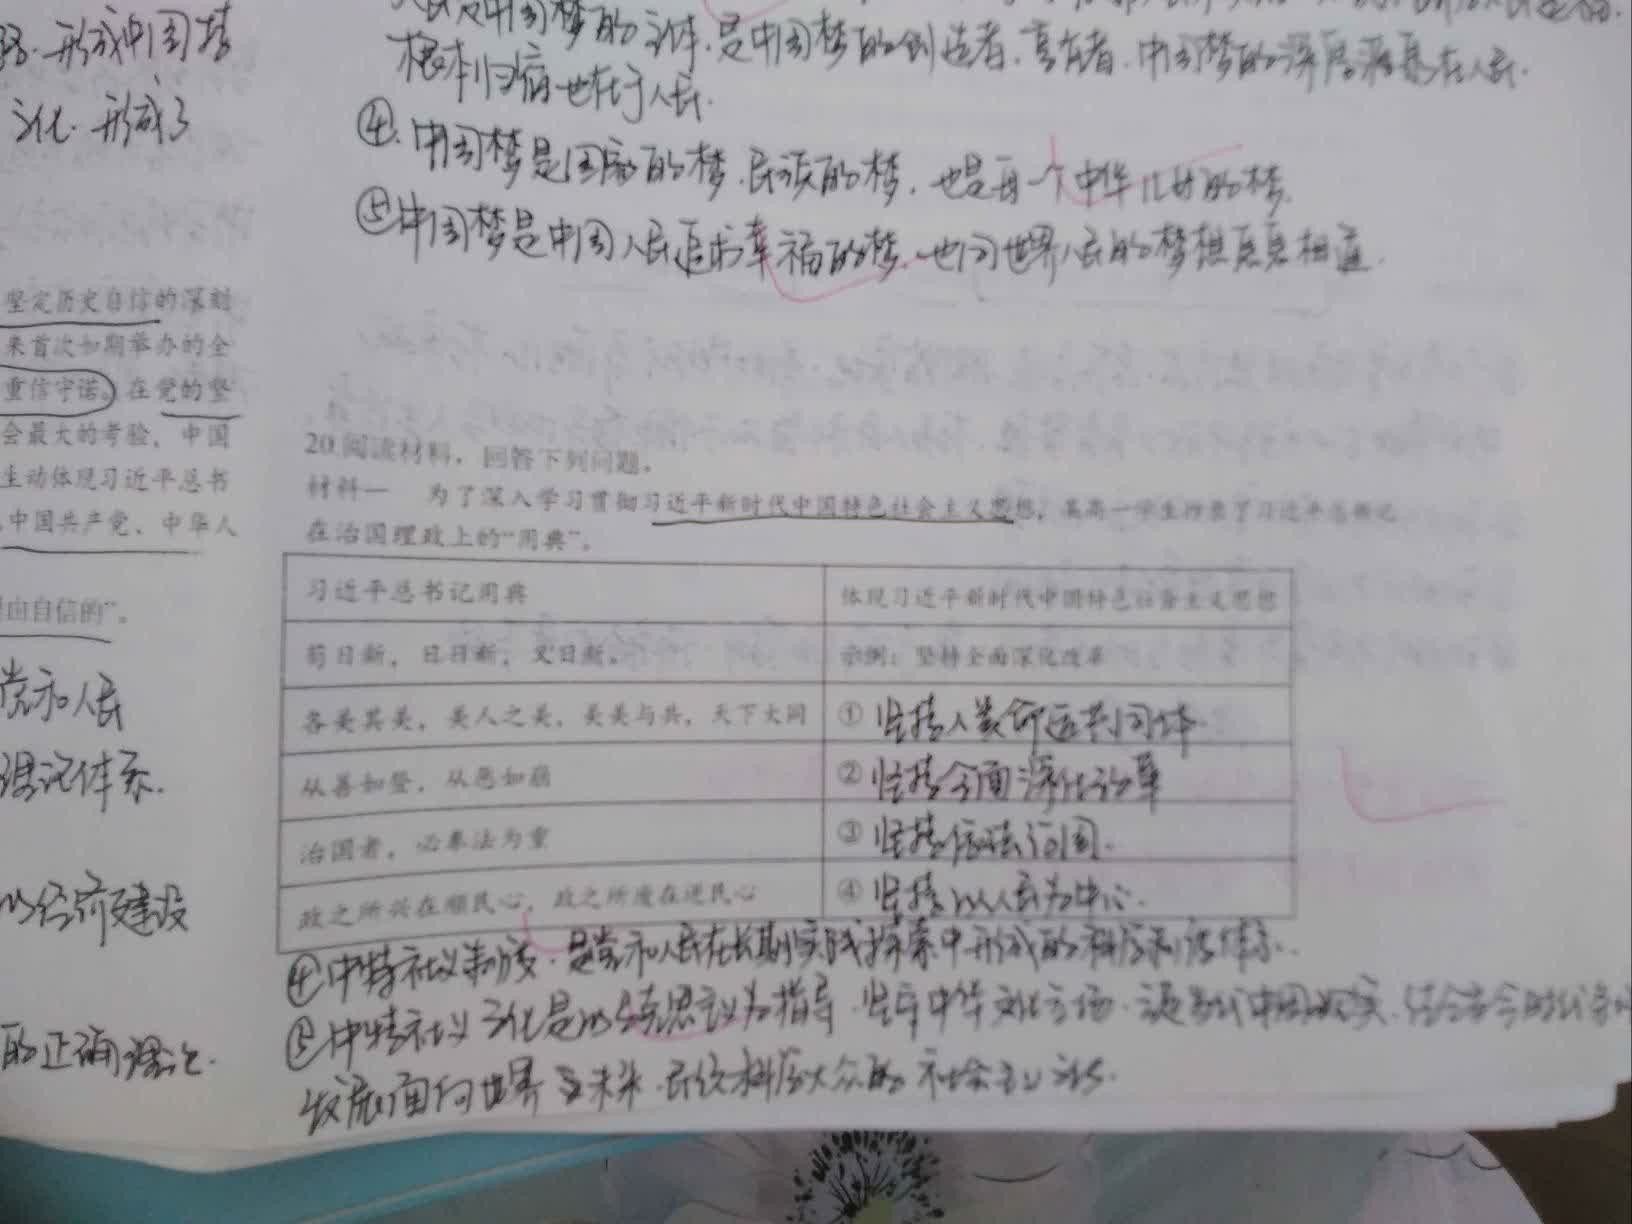 形成中国特
文化. 形成了
坚定历史自信的深刻
来首次如期举办的全
重信守诺。在党的坚
会最大的考验，中国
生动体现习近平总书
中国共产党、中华人
自信的”。
党和人民
理论体系.
以经济建设
的正确理论.
人民是中国梦的主体.是中国梦的创造者、享有者.中国梦的深厚源泉在人民.
根本归宿也在于人民.
④.中国梦是国家的梦.民族的梦.也是每一个中华儿女的梦.
⑤中国梦是中国人民追求幸福的梦.也同世界人民的梦想息息相通.
20.阅读材料，回答下列问题。
材料一 为了深入学习贯彻习近平新时代中国特色社会主义思想，某高一学生抄录了习近平总书记
在治国理政上的“用典”。
习近平总书记用典 体现习近平新时代中国特色社会主义思想
苟日新，日日新，又日新。 示例：坚持全面深化改革
各美其美，美人之美，美美与共，天下大同 ① 坚持人类命运共同体.
从善如登，从恶如崩 ② 坚持全面深化改革
治国者，必奉法为重 ③ 坚持依法治国.
政之所兴在顺民心，政之所废在逆民心 ④ 坚持以人民为中心.
④中特社义制度.是党和人民在长期实践探索中形成的科学制度体系.
⑤中特社义文化是以马克思主义为指导.坚守中华文化立场.立足当代中国现实.结合当今时代条
发展面向世界 未来.民族科学大众的 社会主义